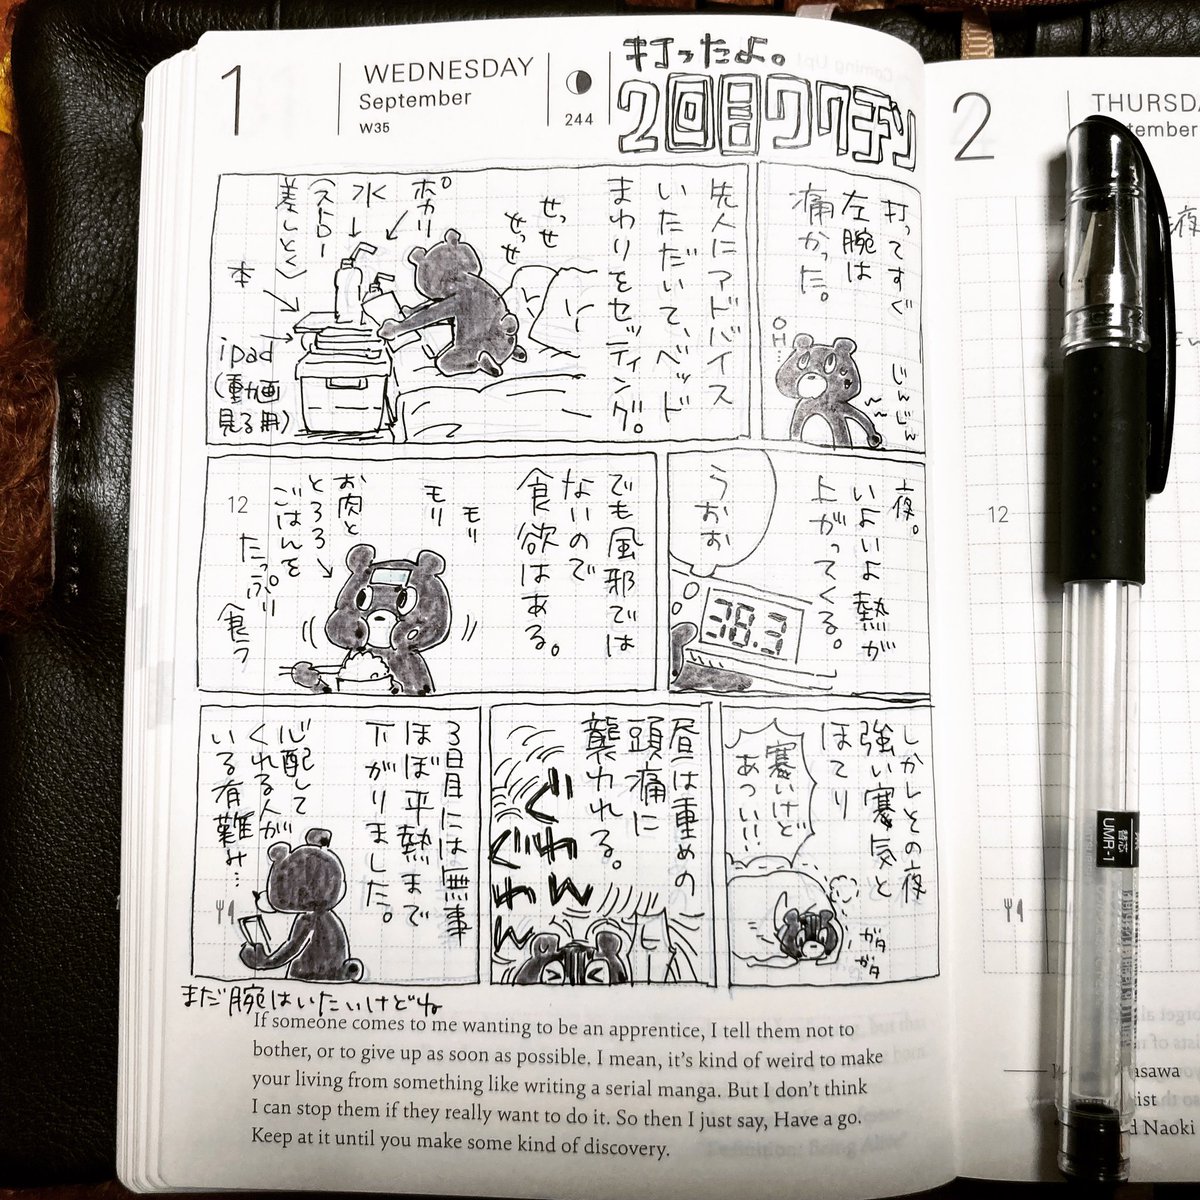 1
WEDNESDAY
September
W35
244
打ったよ。
2回目ワクチン
打ってすぐ
左腕は
痛かった。
OH…
じんじん
先人にアドバイス
いただいて、ベッド
まわりをセッティング。
せっせ
せっせ
ポカリ
水
(ストロー
差しとく)
本
ipad
(動画
見る用)
夜。
いよいよ熱が
上がってくる。
うおお
38.3
でも風邪では
ないので
食欲はある。
モリ
モリ
お肉と
とろろ
ごはんを
たっぷり
食う
12
しかしその夜
強い寒気と
ほてり
寒いけど
あつい!!
ガタ
ガタ
昼は重めの
頭痛に
襲われる。
ぐわん
ぐわん
3日目には無事
ほぼ平熱まで
下がりました。
心配して
くれる人が
いる有難み…
まだ腕はいたいけどね
If someone comes to me wanting to be an apprentice, I tell them not to
bother, or to give up as soon as possible. I mean, it's kind of weird to make
your living from something like writing a serial manga. But I don't think
I can stop them if they really want to do it. So then I just say, Have a go.
Keep at it until you make some kind of discovery.
2
THURSDA
tember
12
夜
asawa
ist
d Naoki
替芯
UMR-1